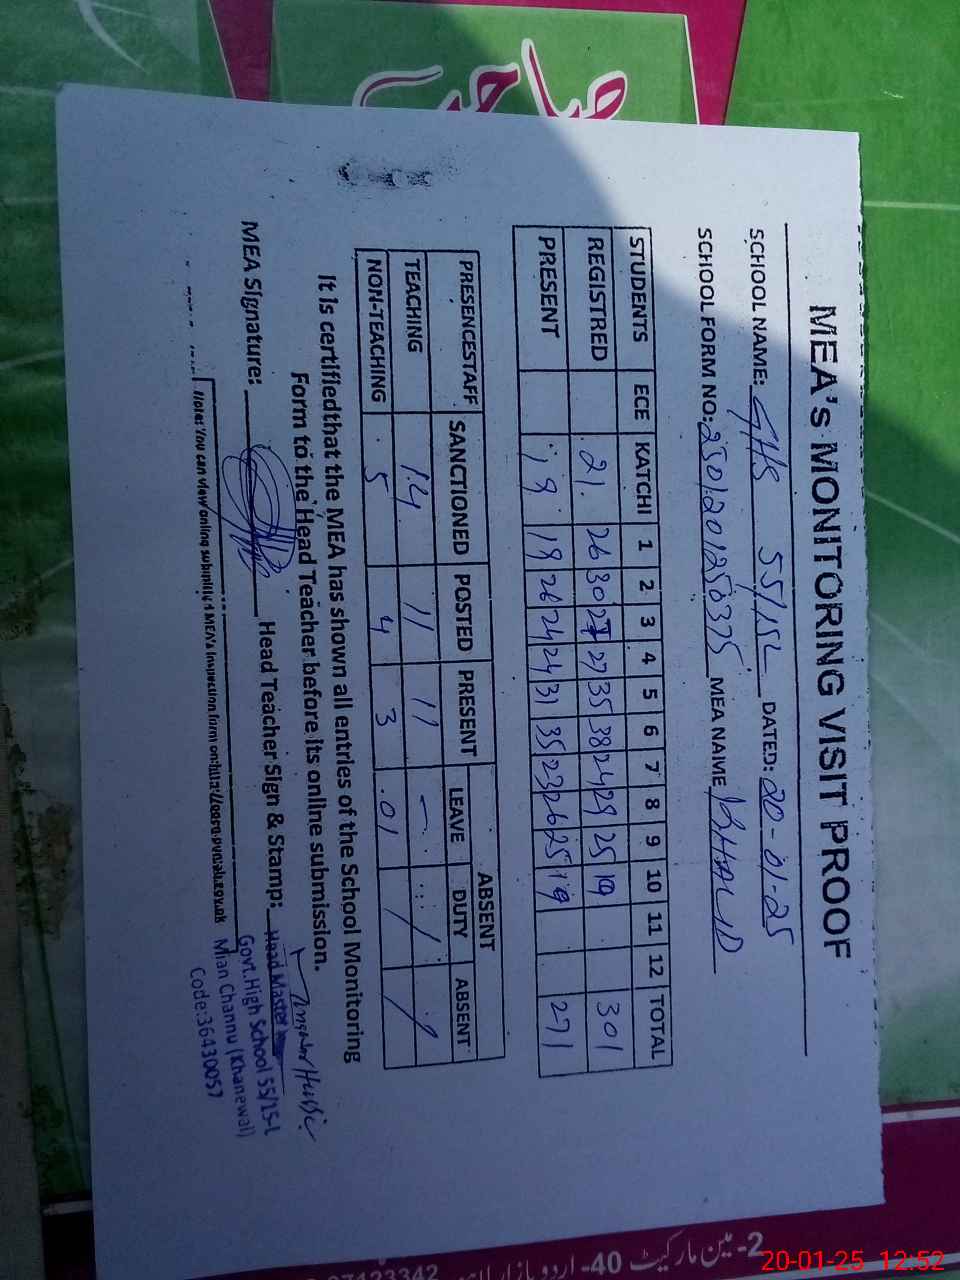 MEA's MONITORING VISIT PROOF
SCHOOL NAME: GHS 55/15L DATED: 20-01-25
SCHOOL FORM NO: 2501201250375 MEA NAME KHALID
STUDENTS ECE KATCHI 1 2 3 4 5 6 7 8 9 10 11 12 TOTAL
REGISTRED 21 26 30 27 27 35 38 24 29 25 19 301
PRESENT 19 19 26 24 24 31 35 23 26 25 19 271
PRESENCESTAFF SANCTIONED POSTED PRESENT ABSENT
LEAVE DUTY ABSENT
TEACHING 14 11 11 -
NON-TEACHING 5 4 3 01
It is certifiedthat the MEA has shown all entries of the School Monitoring
Form to the Head Teacher before its online submission.
MEA Signature: Head Teacher Sign & Stamp:
Head Master
Govt.High School 55/15-L
Mian Channu (Khanewal)
Code:36430057
Note: You can view online submitted MEA's inspection form on
2- مین مارکیٹ 40- اردو بازار لاہور
20-01-25 12:52